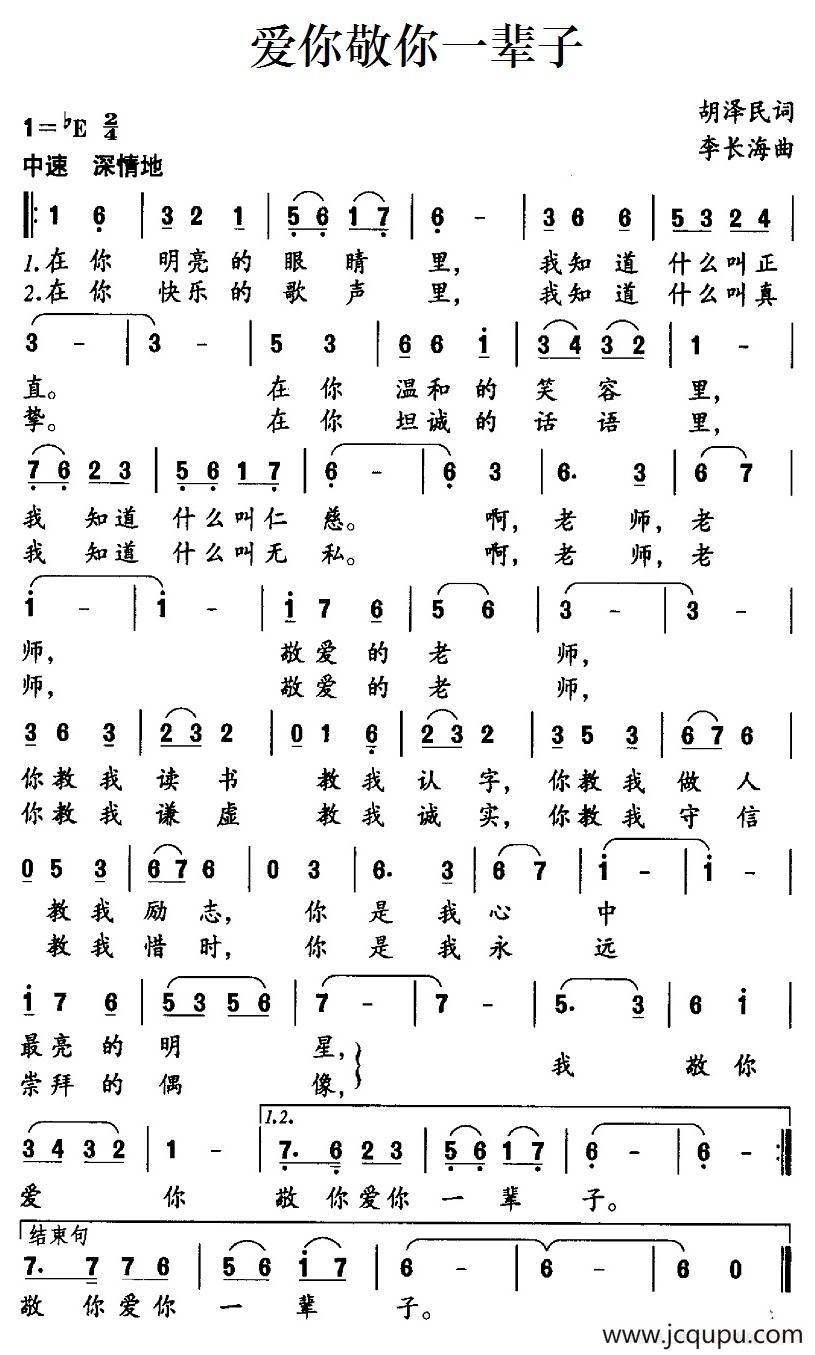 爱你敬你一辈子
1=♭E 2/4
胡泽民词
中速 深情地
李长海曲
1 6 | 3 2 1 | 5 6 1 7 | 6 - | 3 6 6 | 5 3 2 4 |
1.在你 明亮的眼睛里, 我知道什么叫正
2.在你 快乐的歌声里, 我知道什么叫真
3 - | 3 - | 5 3 | 6 6 i | 3 4 3 2 | 1 - |
直。 在你温和的笑容里,
挚。 在你坦诚的话语里,
7 6 2 3 | 5 6 1 7 | 6 - | 6 3 | 6. 3 | 6 7 |
我知道什么叫仁慈。 啊,老师,老
我知道什么叫无私。 啊,老师,老
i - | i - | i 7 6 | 5 6 | 3 - | 3 - |
师, 敬爱的老师,
师, 敬爱的老师,
3 6 3 | 2 3 2 | 0 1 6 | 2 3 2 | 3 5 3 | 6 7 6 |
你教我读书 教我认字,你教我做人
你教我谦虚 教我诚实,你教我守信
0 5 3 | 6 7 6 | 0 3 | 6. 3 | 6 7 | i - | i - |
教我励志, 你是我心中
教我惜时, 你是我永远
i 7 6 | 5 3 5 6 | 7 - | 7 - | 5. 3 | 6 i |
最亮的明星,
我敬你
崇拜的偶像,
1.2.
3 4 3 2 | 1 - | 7. 6 2 3 | 5 6 1 7 | 6 - | 6 - :|
爱你 敬你爱你一辈子。
结束句
7. 7 7 6 | 5 6 i 7 | 6 - | 6 - | 6 0 ‖
敬你爱你一辈子。
www.jcqupu.com